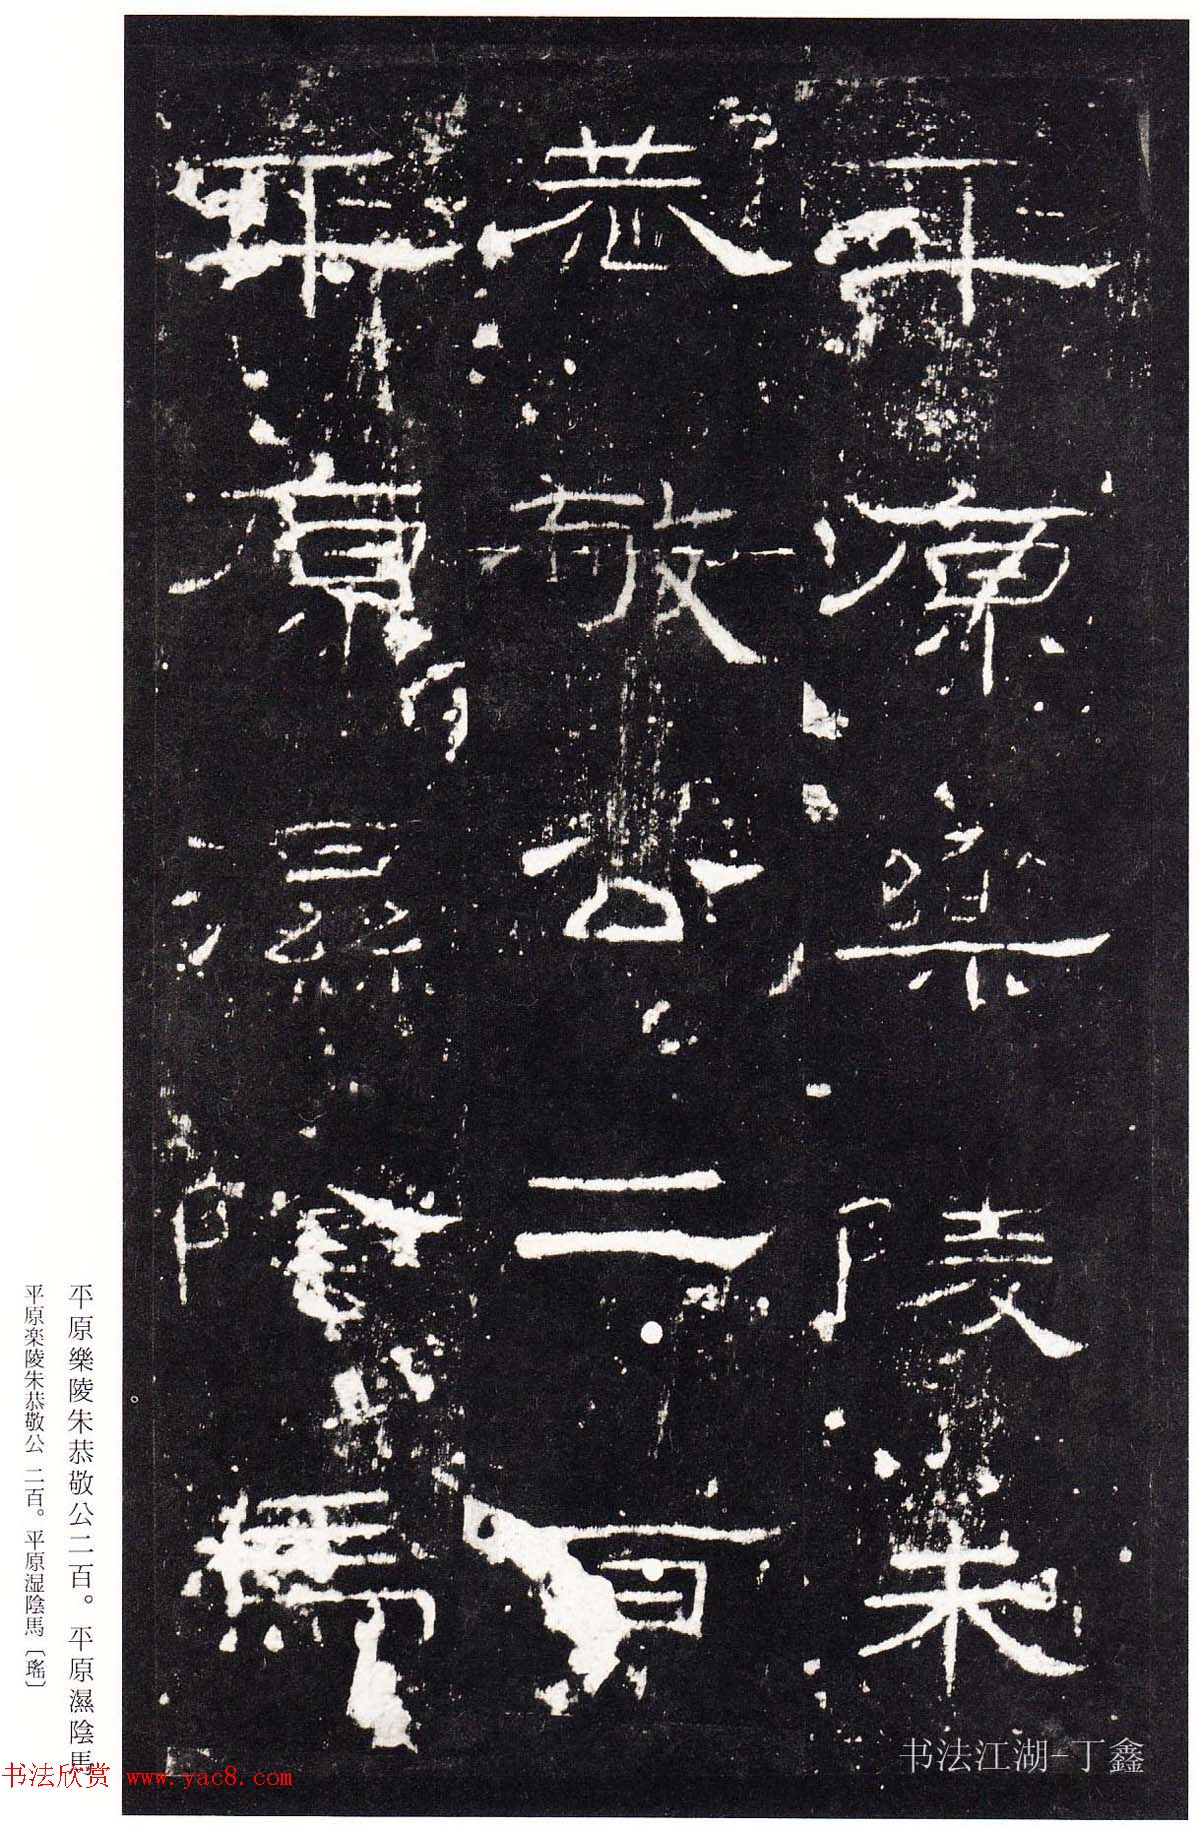 平原樂陵朱
恭敬公二百
平原濕陰馬
平原樂陵朱恭敬公二百。平原濕陰馬
平原楽陵朱恭敬公 二百。平原湿陰馬〔瑤〕
书法江湖-丁鑫
书法欣赏 www.yac8.com